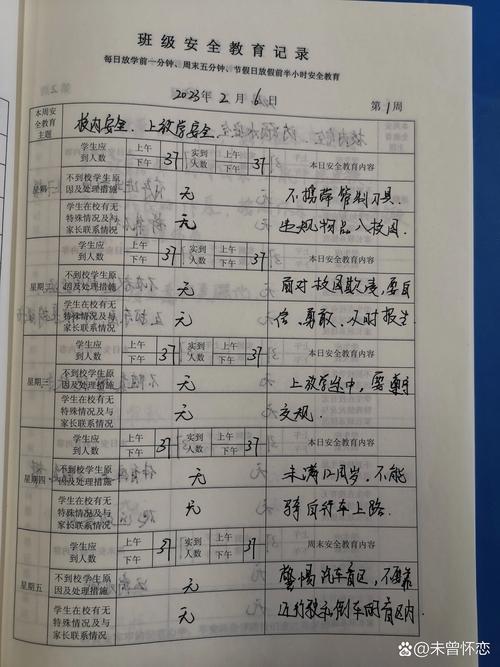 班级安全教育记录
每日放学前一分钟、周末五分钟、节假日放假前半小时安全教育
2023年2月6日 第1周
本周安全教育主题 校内安全、上放学安全
学生应到人数 上午 下午 37 实到人数 上午 下午 37 本日安全教育内容
星期一
不到校学生原因及处理措施 无 不携带管制刀具
学生在校有无特殊情况及与家长联系情况 无 违规物品入校园.
学生应到人数 上午 下午 37 实到人数 上午 下午 37 本日安全教育内容
星期二
不到校学生原因及处理措施 无 面对校园欺凌,要自
学生在校有无特殊情况及与家长联系情况 无 信、勇敢、及时报告
学生应到人数 上午 下午 37 实到人数 上午 下午 37 本日安全教育内容
星期三
不到校学生原因及处理措施 无 上放学途中,要
学生在校有无特殊情况及与家长联系情况 无 交规.
学生应到人数 上午 下午 37 实到人数 上午 下午 37 本日安全教育内容
星期四
不到校学生原因及处理措施 无 未满12周岁,不能
学生在校有无特殊情况及与家长联系情况 无 骑自行车上路.
学生应到人数 上午 下午 37 实到人数 上午 下午 37 周末安全教育内容
星期五
不到校学生原因及处理措施 无 警惕汽车盲区,不要靠
学生在校有无特殊情况及与家长联系情况 无 近 倒车的盲区内.
@未曾怀恋